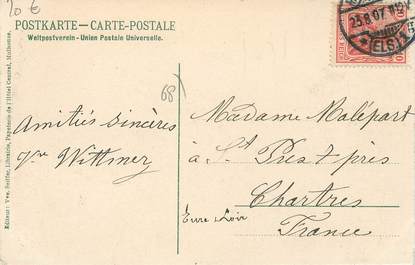 20 €
POSTKARTE - CARTE-POSTALE
Weltpostverein - Union Postale Universelle.
68
23.8.07
(ELS)
Amitiés sincères
Wittmer
Madame Malépart
à St Prest près
Chartres
Eure & Loir
France
Editeur: Vve. Librairie, Papeterie de l'Hôtel Central, Mulhouse.